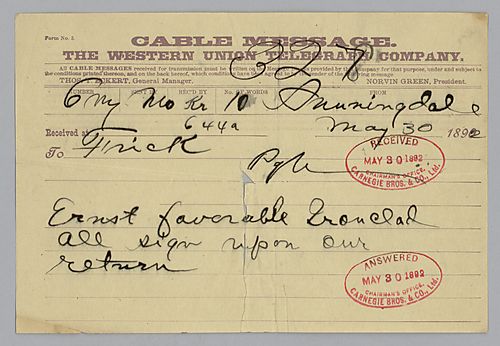 Form No. 2.
CABLE MESSAGE.
THE WESTERN UNION TELEGRAPH COMPANY.
ALL CABLE MESSAGES received for transmission must be written on the Message provided by this for that purpose, under and subject to
the conditions printed thereon, and on the back hereof, which conditions have been agreed to by the sender of the following message.
THOS. T. ECKERT, General Manager. NORVIN GREEN, President.
NUMBER SENT BY REC'D BY No. OF WORDS FROM
6 Ny Mo Kr 10 Sunningdale
644a
Received at May 30 1892
To Frick
Pgh
RECEIVED
MAY 30 1892
CHAIRMAN'S OFFICE,
CARNEGIE BROS. & CO., Ltd.
Ernst favorable Ironclad
all sign upon our
return
ANSWERED
MAY 30 1892
CHAIRMAN'S OFFICE,
CARNEGIE BROS. & CO., Ltd.